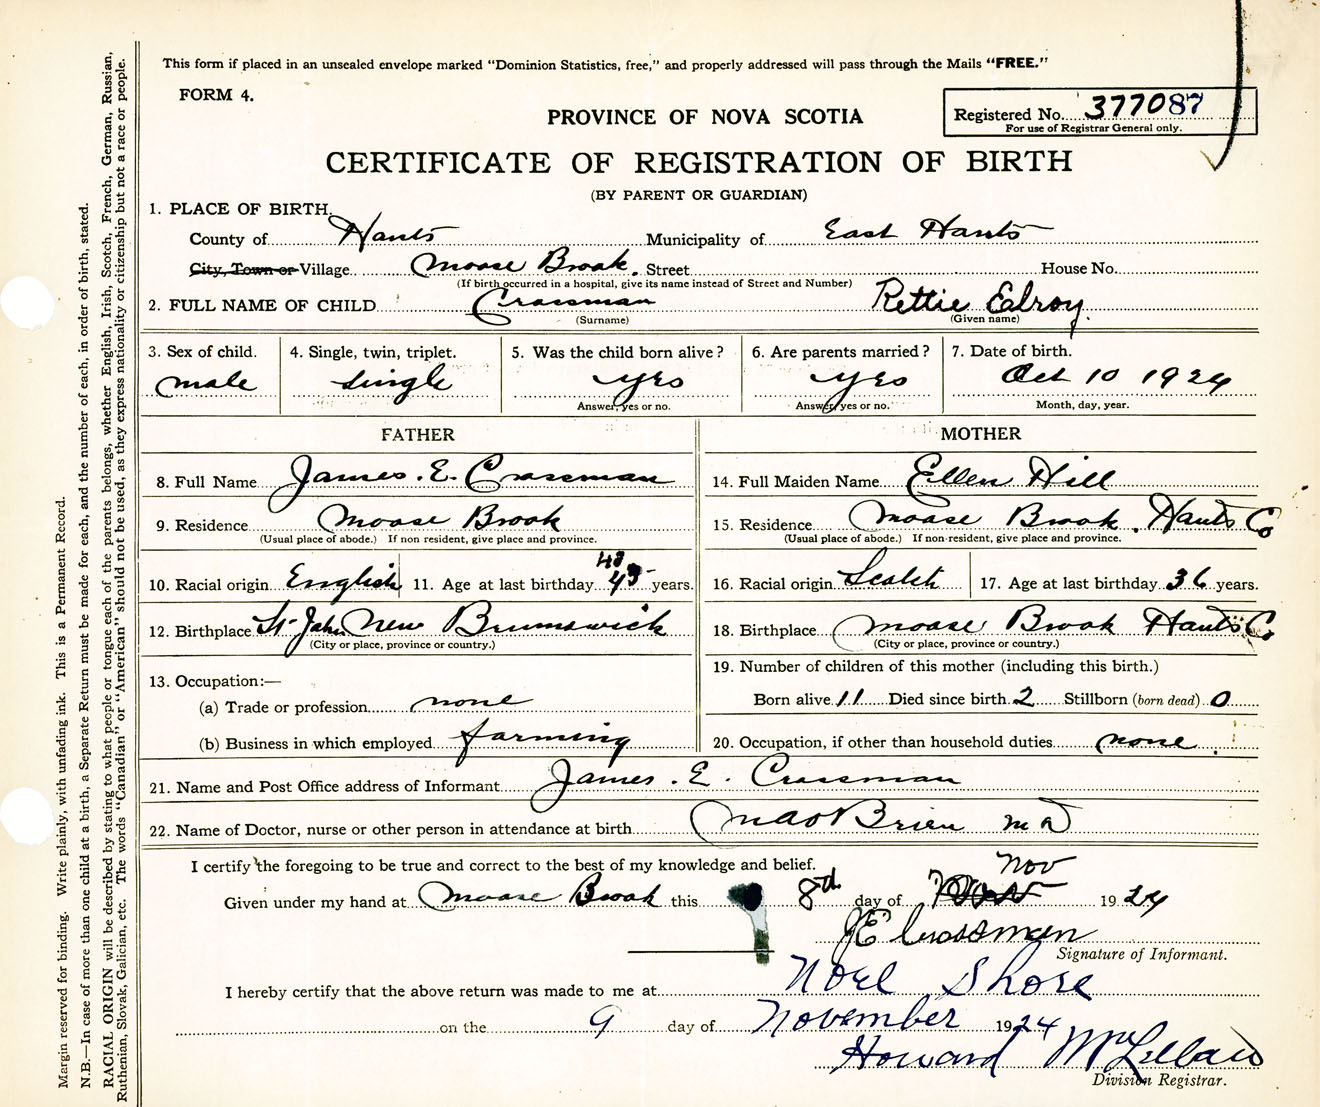 This form if placed in an unsealed envelope marked "Dominion Statistics, free," and properly addressed will pass through the Mails "FREE."
FORM 4.
PROVINCE OF NOVA SCOTIA
Registered No. 377087
For use of Registrar General only.
CERTIFICATE OF REGISTRATION OF BIRTH
(BY PARENT OR GUARDIAN)
1. PLACE OF BIRTH.
County of Hants Municipality of East Hants
City, Town or Village Moose Brook. Street House No.
(If birth occurred in a hospital, give its name instead of Street and Number)
2. FULL NAME OF CHILD Crossman Rettie Edroy.
(Surname) (Given name)
3. Sex of child. 4. Single, twin, triplet. 5. Was the child born alive? 6. Are parents married? 7. Date of birth.
male single yes yes Oct 10 1924
Answer, yes or no. Answer, yes or no. Month, day, year.
FATHER MOTHER
8. Full Name James. E. Crossman 14. Full Maiden Name Ellen Hill
9. Residence Moose Brook 15. Residence Moose Brook. Hants Co
(Usual place of abode.) If non resident, give place and province. (Usual place of abode.) If non-resident, give place and province.
10. Racial origin English 11. Age at last birthday 43 years. 16. Racial origin Scotch 17. Age at last birthday 36 years.
12. Birthplace St. John New Brunswick 18. Birthplace Moose Brook Hants Co
(City or place, province or country.) (City or place, province or country.)
13. Occupation:— 19. Number of children of this mother (including this birth.)
(a) Trade or profession none Born alive 11 Died since birth 2 Stillborn (born dead) 0
(b) Business in which employed farming 20. Occupation, if other than household duties none.
21. Name and Post Office address of Informant James. E. Crossman
22. Name of Doctor, nurse or other person in attendance at birth O'Brien M D
I certify the foregoing to be true and correct to the best of my knowledge and belief.
Nov
Given under my hand at Moose Brook this 8th day of 1924
J E Crossman
Signature of Informant.
I hereby certify that the above return was made to me at Noel Shore
on the 9 day of November 1924
Howard McLellan
Division Registrar.
Margin reserved for binding. Write plainly, with unfading ink. This is a Permanent Record.
N.B.—In case of more than one child at a birth, a Separate Return must be made for each, and the number of each, in order of birth, stated.
RACIAL ORIGIN will be described by stating to what people or tongue each of the parents belongs, whether English, Irish, Scotch, French, German, Russian,
Ruthenian, Slovak, Galician, etc. The words "Canadian" or "American" should not be used, as they express nationality or citizenship but not a race or people.